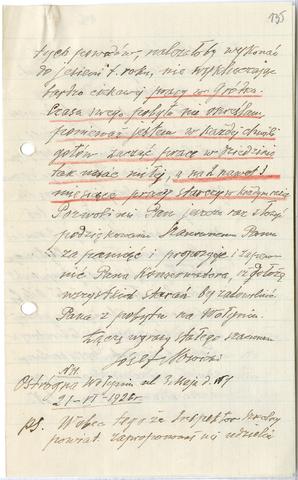 135
tych powodów, należałoby wykonać
do jesieni t. roku, nie wykluczając
bardzo ciekawej pracy w Gródku.
Czasu swego pobytu nie określam,
ponieważ jestem w każdej chwili
gotów zacząć pracę w dziedzinie
tak miłej, a nad nawet
miesiąca pracy starczy w każdym razie
Pozwoli mi Pan jeszcze raz złożyć
podziękowanie Szanownemu Panu
za pamięć i propozycję i zapewnić
Pana Konserwatora, że dołożę
wszystkich starań by zadowolnić
Pana z pobytu na Wołyniu
Łączę wyrazy stałego szacunku
Józef
Ostróg na Wołyniu ul. 3. Maja d.
21-VI-1926 r.
PS. Wobec tego że Inspektor szkolny
powiat. zaproponował mi udzielić